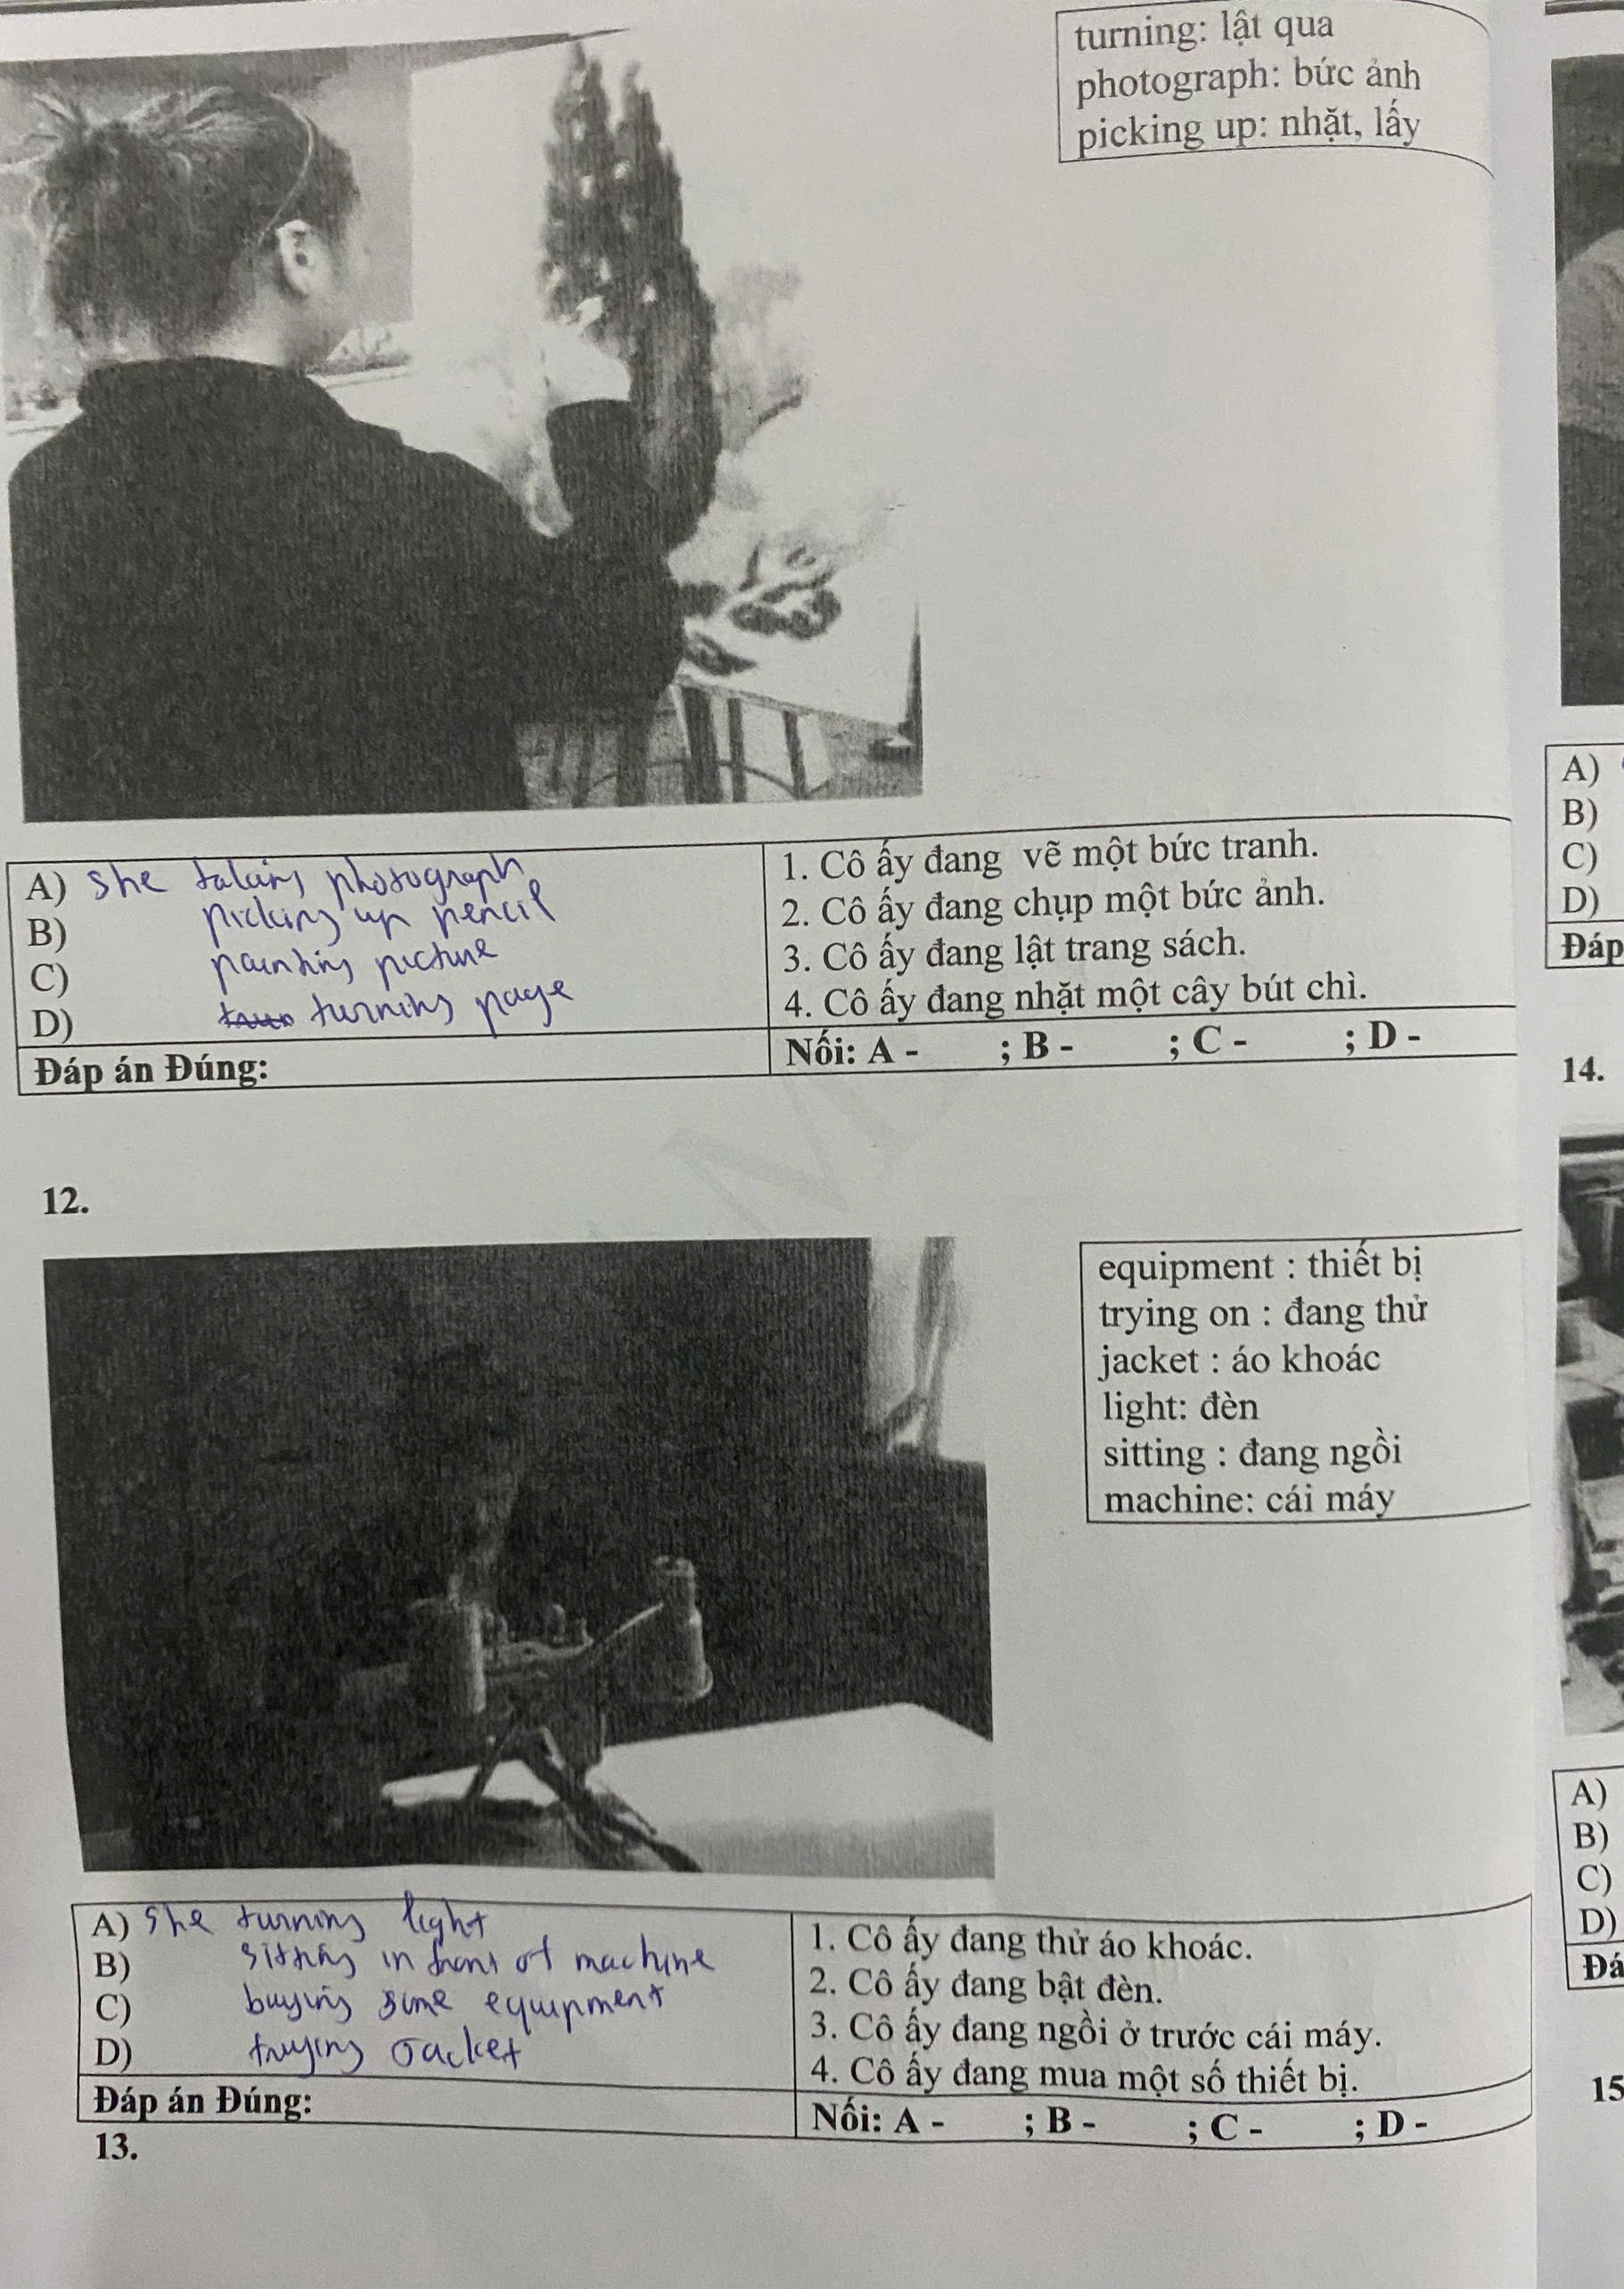 turning: lật qua
photograph: bức ảnh
picking up: nhặt, lấy
A) she taking photograph
B) picking up pencil
C) painting picture
D) turning page
Đáp án Đúng:
1. Cô ấy đang vẽ một bức tranh.
2. Cô ấy đang chụp một bức ảnh.
3. Cô ấy đang lật trang sách.
4. Cô ấy đang nhặt một cây bút chì.
Nối: A - ; B - ; C - ; D -
12.
equipment : thiết bị
trying on : đang thử
jacket : áo khoác
light: đèn
sitting : đang ngồi
machine: cái máy
A) she turning light
B) sitting in front of machine
C) buying some equipment
D) trying Jacket
Đáp án Đúng:
1. Cô ấy đang thử áo khoác.
2. Cô ấy đang bật đèn.
3. Cô ấy đang ngồi ở trước cái máy.
4. Cô ấy đang mua một số thiết bị.
Nối: A - ; B - ; C - ; D -
13.
A)
B)
C)
D)
Đáp
14.
A)
B)
C)
D)
Đá
15